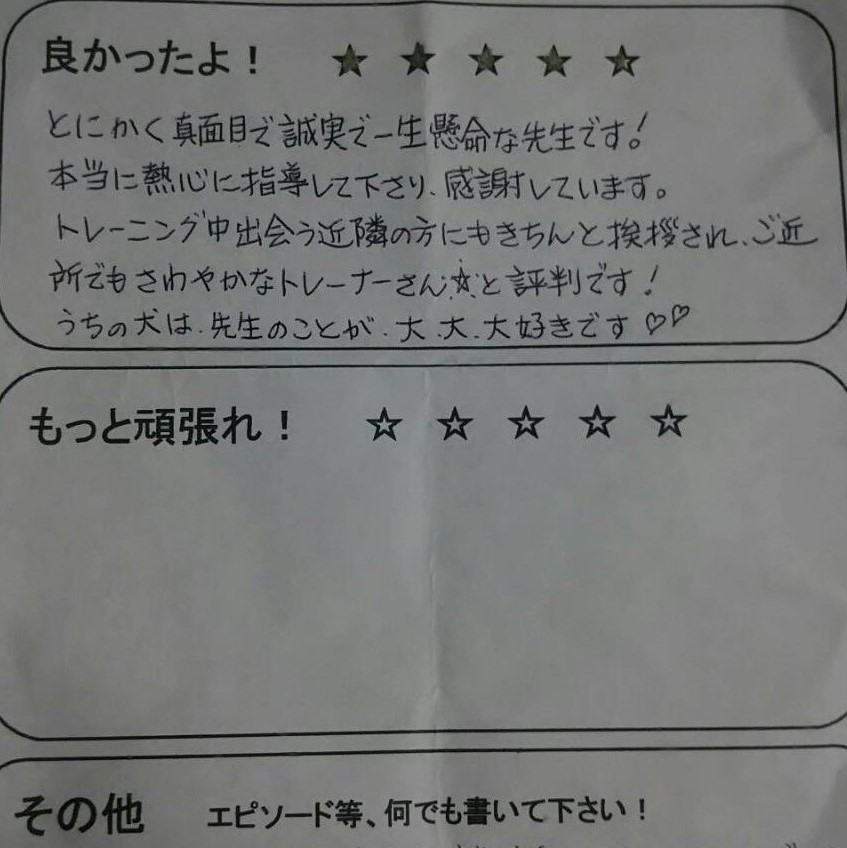 良かったよ! ★ ★ ★ ★ ★
とにかく真面目で誠実で一生懸命な先生です!
本当に熱心に指導して下さり、感謝しています。
トレーニング中出会う近隣の方にもきちんと挨拶され、ご近
所でもさわやかなトレーナーさん☆と評判です!
うちの犬は、先生のことが、大、大、大好きです♡♡
もっと頑張れ! ☆ ☆ ☆ ☆ ☆
その他 エピソード等、何でも書いて下さい!